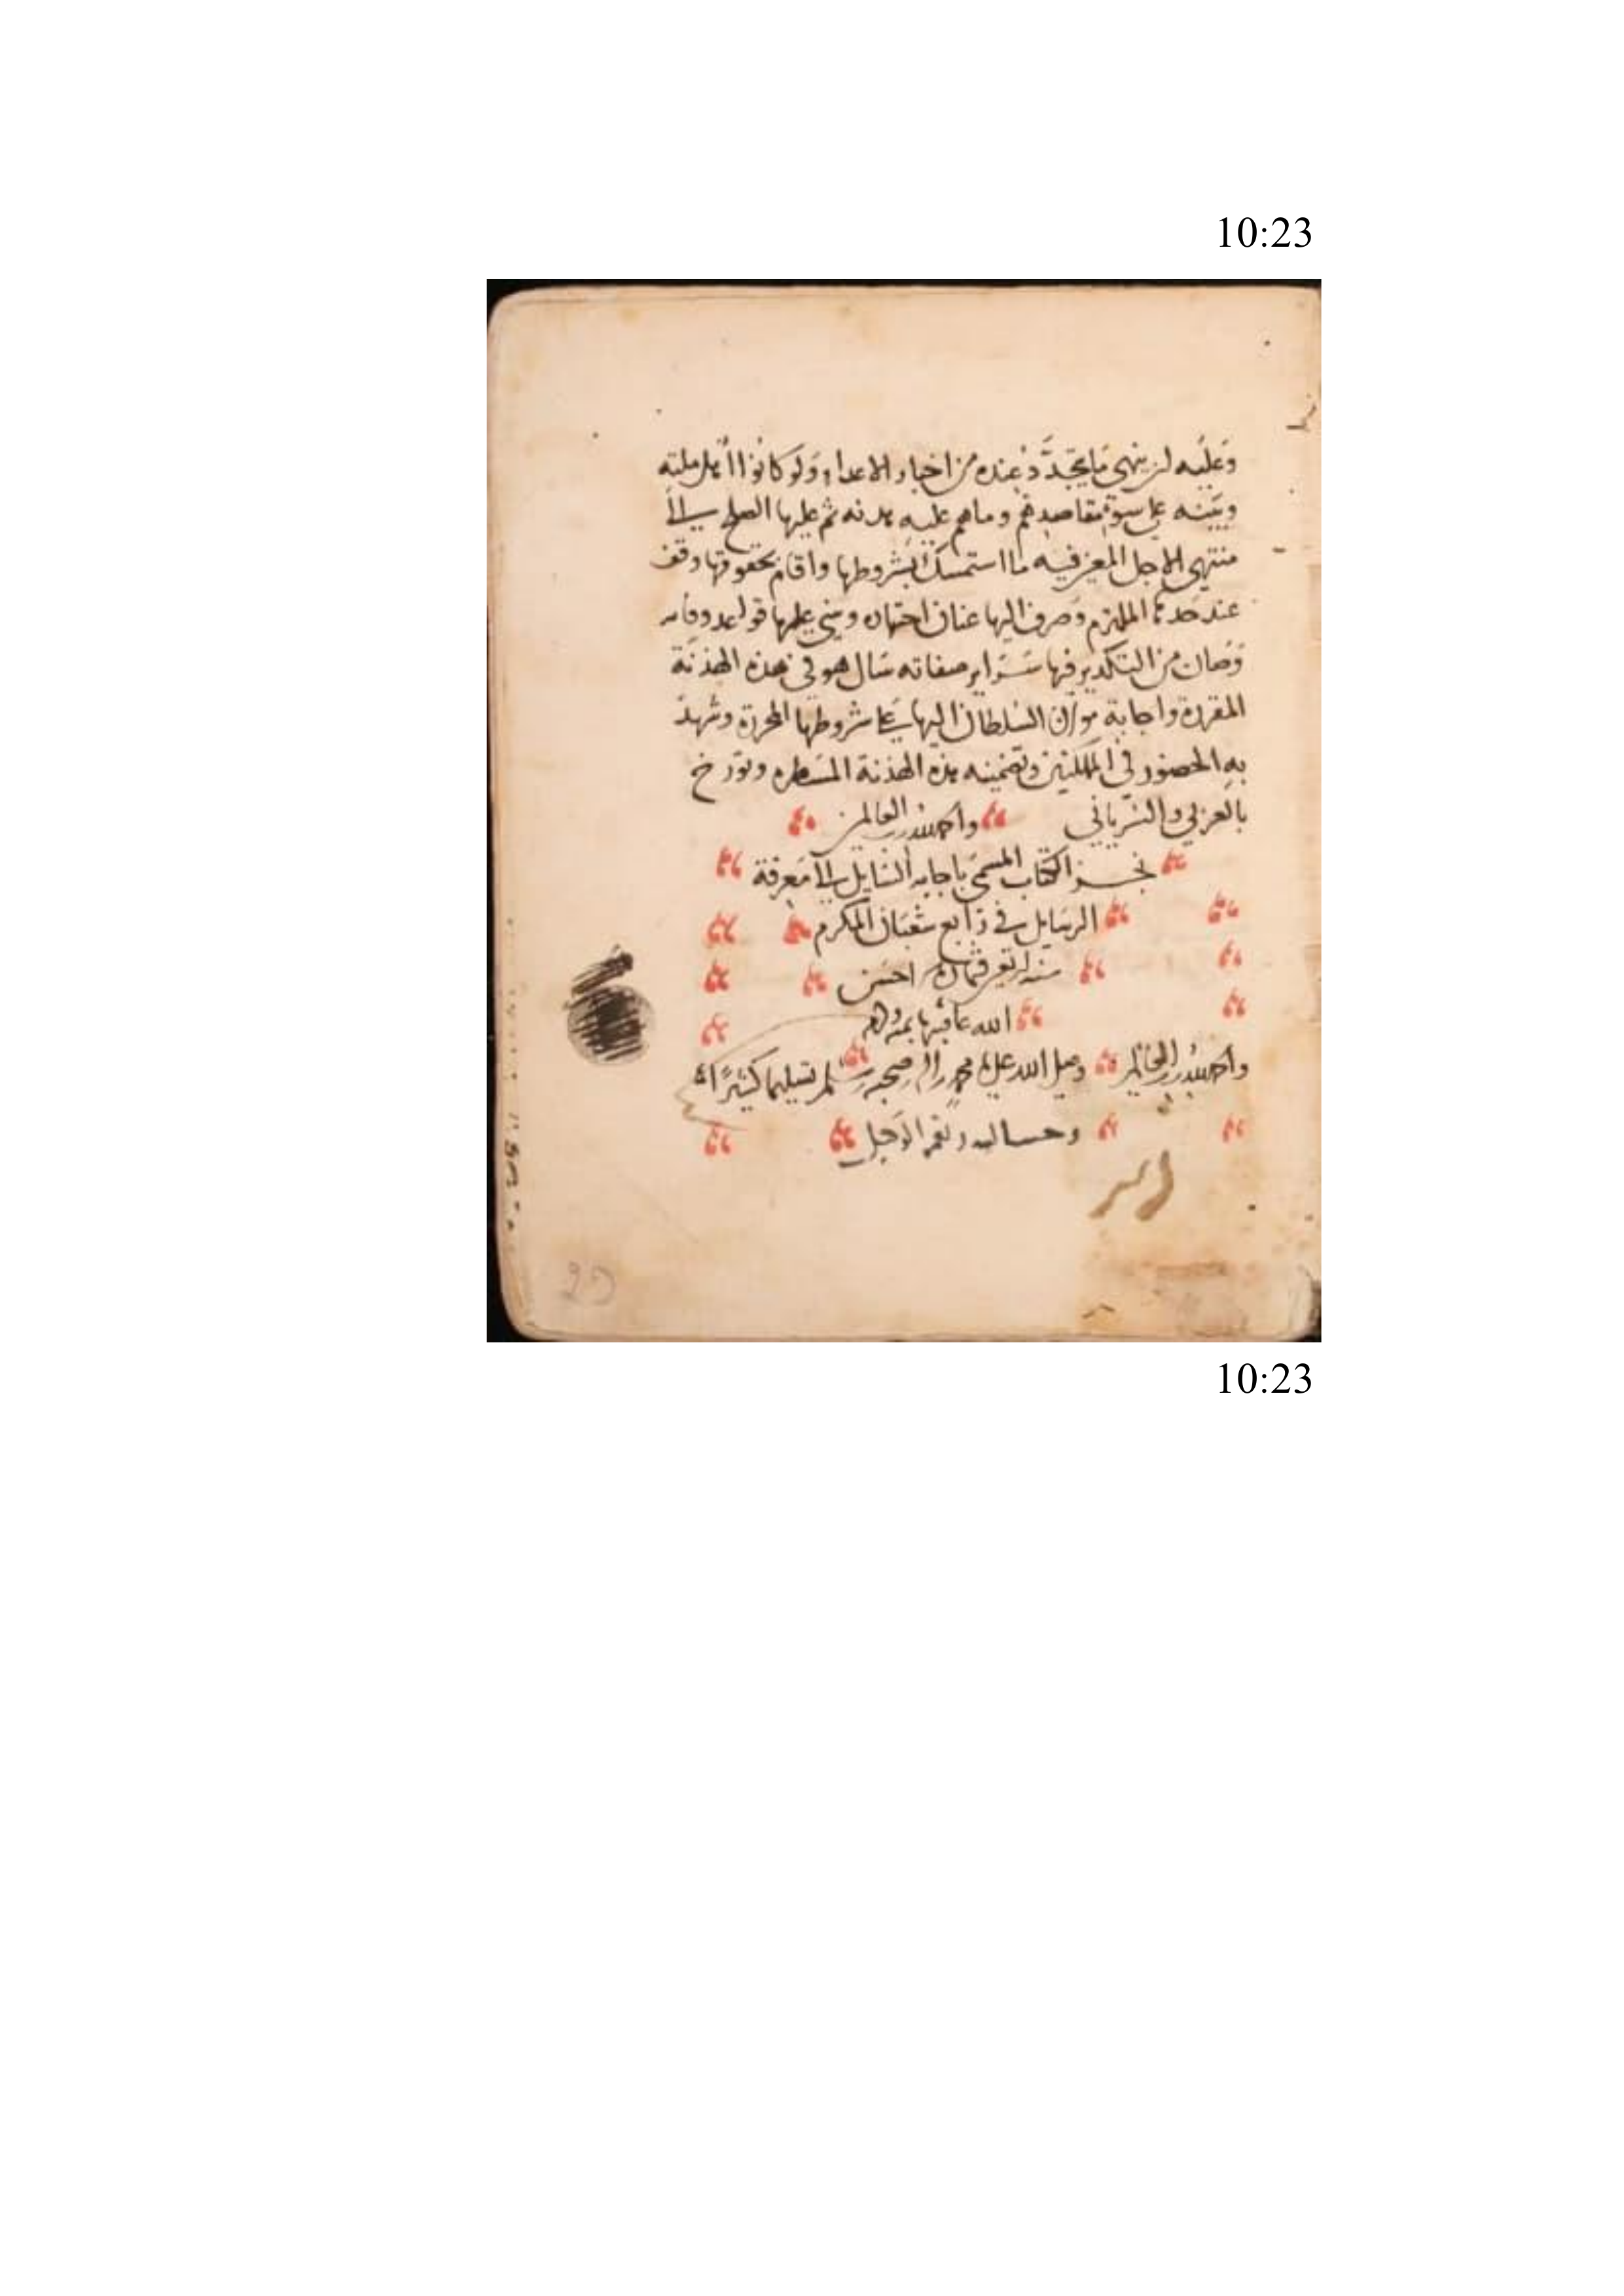 10:23
وعليه ان ينهي ما يتجدد عنده من اخبار الاعداء ولو كانوا اهل ملته
وينبه على سوء مقاصدهم وما هم عليه هدنة تم عليها الصلح الى
منتهى الاجل المعين فيه ما استمسك بشروطها واقام بحقوقها ووقف
عند حدها الملتزم وصرف اليها عنان اجتهاده وبنى عليها قواعد وفائه
وصان من التكدير فيها سراير صفائه سال هو في هذه الهدنة
المقررة واجابة مولانا السلطان اليها على شروطها المحررة وشهد
به الحضور في المملكتين وتضمينه هذه الهدنة المسطرة وتورخ
بالعربي والسرياني والحمد لله رب العالمين
نجز الكتاب المسمى باجابة السايل الى معرفة
الرسايل في رابع شعبان المكرم
سنة احسن
الله عاقبتها بمنه
والحمد لله رب العالمين وصلى الله على محمد واله وصحبه وسلم تسليما كثيرا
وحسبنا الله ونعم الوكيل
10:23